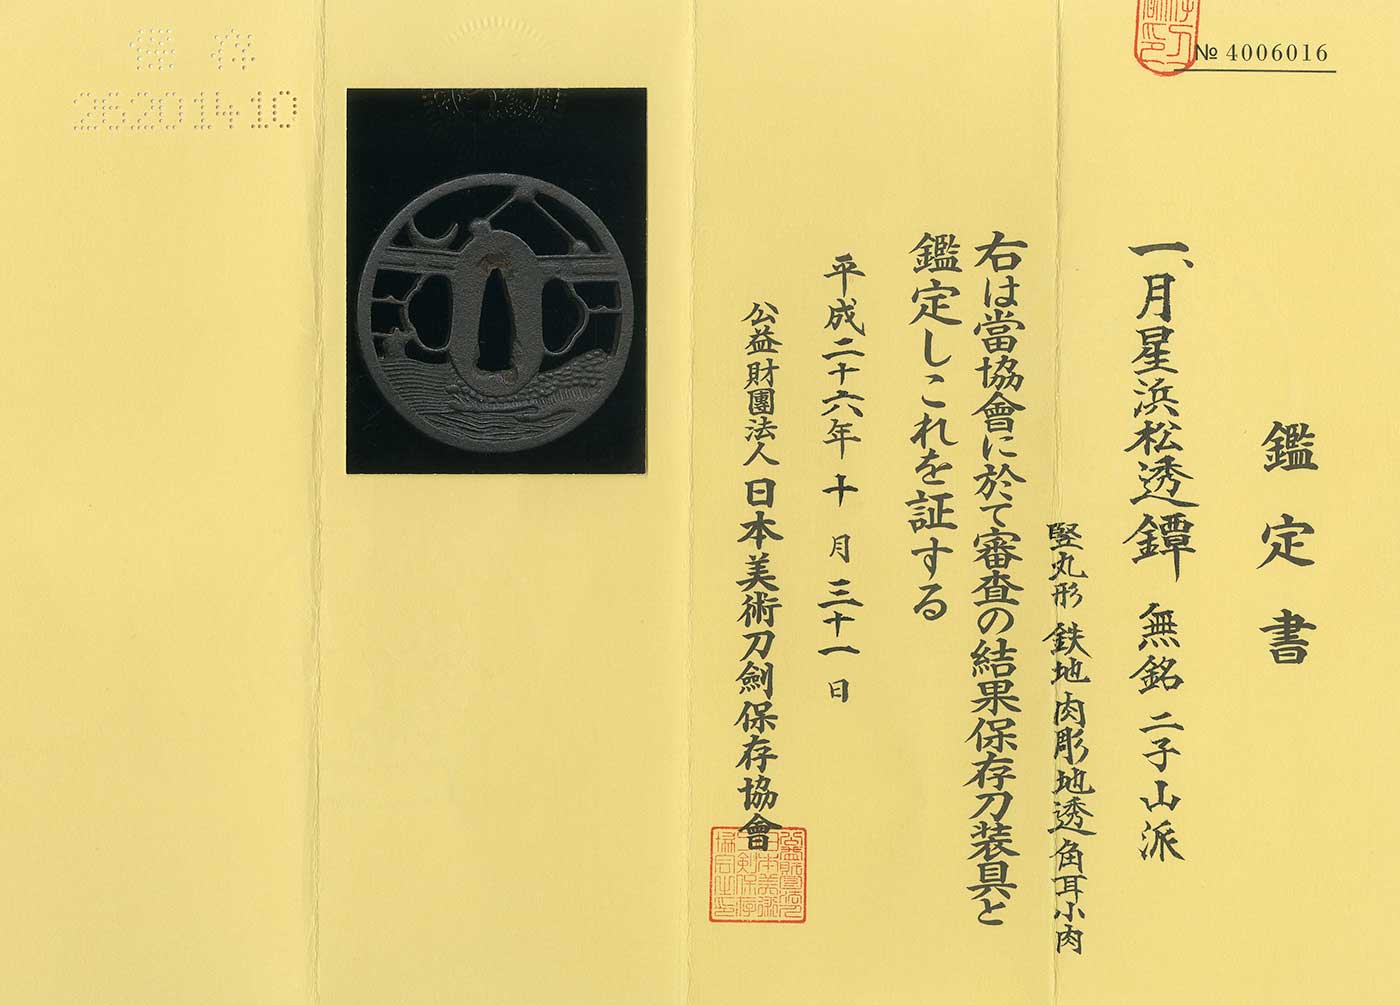 № 4006016
鑑定書
一、月星浜松透鐔 無銘 二子山派
竪丸形 鉄地 肉彫地透 角耳小肉
右は當協會に於て審査の結果保存刀装具と
鑑定しこれを証する
平成二十六年 十月 三十一日
公益財團法人 日本美術刀劍保存協會
保存
26201410